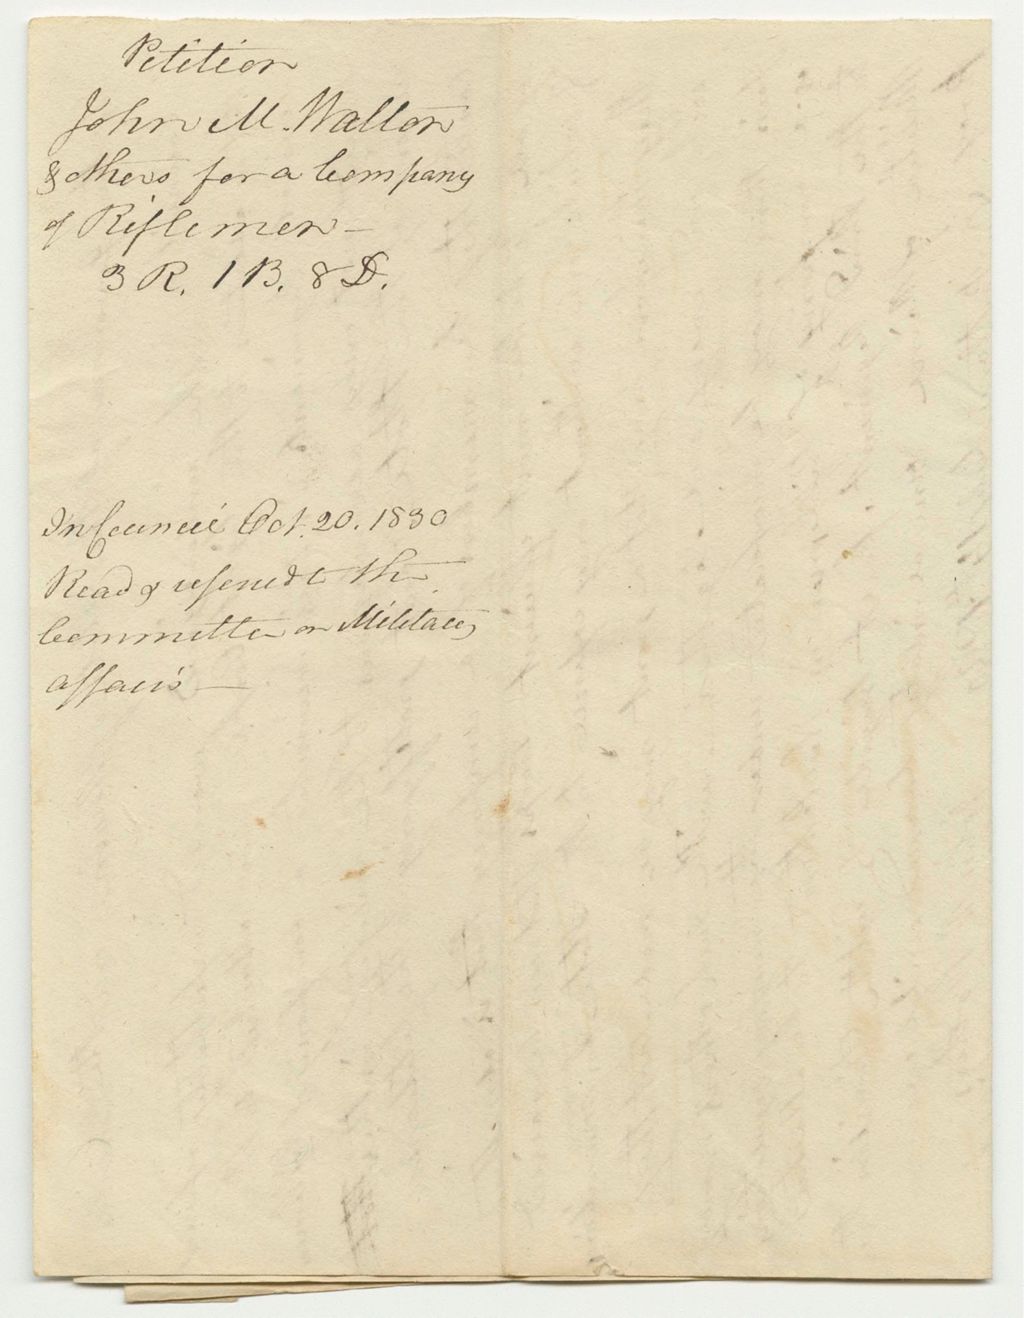 Petition
John M. Walton
& others for a Company
of Riflemen —
3 R. 1 B. 8 D.
In Council Oct. 20. 1830
Read & referred to the
Committee on Military
affairs —